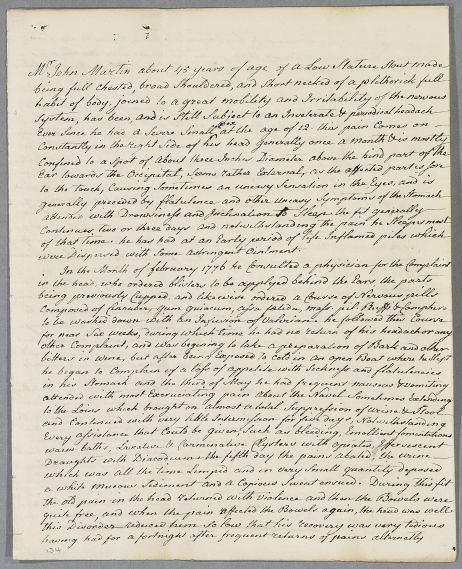 Mr. John Martin about 45 years of age of a Low Stature Stout made
being full Chested, broad Shouldered, and Short necked of a plethorick full
habit of body, joined to a great mobility and Irritability of the nervous
System, has been and is Still Subject to an Inveterate & periodical headach
Ever Since he had a Severe Small pox at the age of 12 this pain Comes on
Constantly in the right Side of his head generally once a month & is mostly
Confined to a Spot of about three Inches Diameter above the hind part of the
Ear towards the Occiput, Seems rather External, as the affected part is Sore
to the touch, Causing Sometimes an uneasy Sensation in the Eyes, and is
generally preceded by flatulence and other uneasy Symptoms of the Stomach
attended with Drowsiness and Inclination to Sleep the fit generally
Continues two or three days and notwithstanding the pain he Sleeps most
of that time. he has had at an Early period of life Inflamed piles which
were dispersed with Some astringent Ointment.
In the Month of february 1776 he Consulted a physician for the Complaint
in the head, who ordered blisters to be applyed behind the Ears the parts
being previously Cupped, and likewise ordered a Course of Nervous pills
Composed of Cinnabar, gum guaiacum, assa fœtida, mass. pil.
to be washed down with an Infusion of Valerian. he followed this Course
for near Six weeks, during which time he had no return of his headach or any
other Complaint, and was begining to take a preparation of Bark and other
bitters in wine, but after been Exposed to Cold in an open Boat where he Slept
he began to Complain of a loss of appetite with Sickness and flatulencies
in his Stomach and the third of May he had frequent nauseas & vomiting
attended with most Excruciating pain about the Navel Sometimes extending
to the Loins which brought on almost a total Suppression of urine & Stool
and Continued with very little Intermission for five days. Notwithstanding
Every assistance that Could be given, Such as bleeding, Emollient fomentations
warm baths, Lenative & Carminative Clysters with opiates, Effervescent
Draughts with Diacodium. the fifth day the pains abated, the urine
which was all the time Limped and in very Small quantity deposed
a white mucous Sediment and a Copious Sweat ensued. During this fit
the old pain in the head returned with violence and then the Bowels were
quite free, and when the pain affected the Bowels again, the head was well
this Disorder reduced him So low that his recovery was very tedious
having had for a fortnight after frequent returns of pains alternately